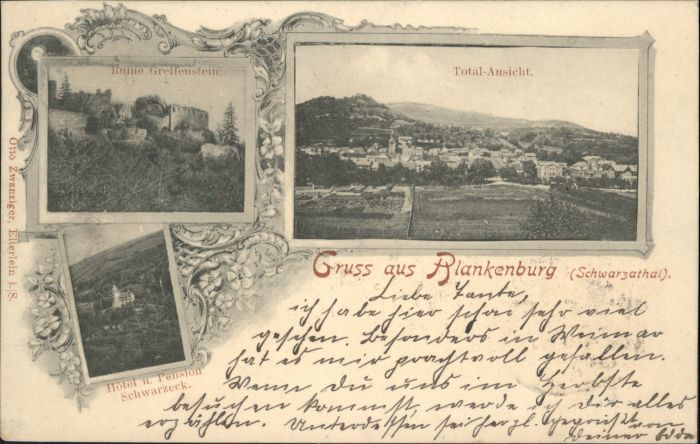 Ruine Greifenstein.
Total-Ansicht.
Otto Zwanziger, Elterlein i. S.
Hôtel u. Pension
Schwarzeck.
Gruss aus Blankenburg (Schwarzathal).
Liebe Tante,
ich habe hier schon sehr viel
gesehen. Besonders in Weimar
hat es mir prachtvoll gefallen.
Wenn Du uns im Herbste
besuchen kommst, werde ich Dir alles
erzählen. Unterdessen sei herzl. gegrüßt von
deiner